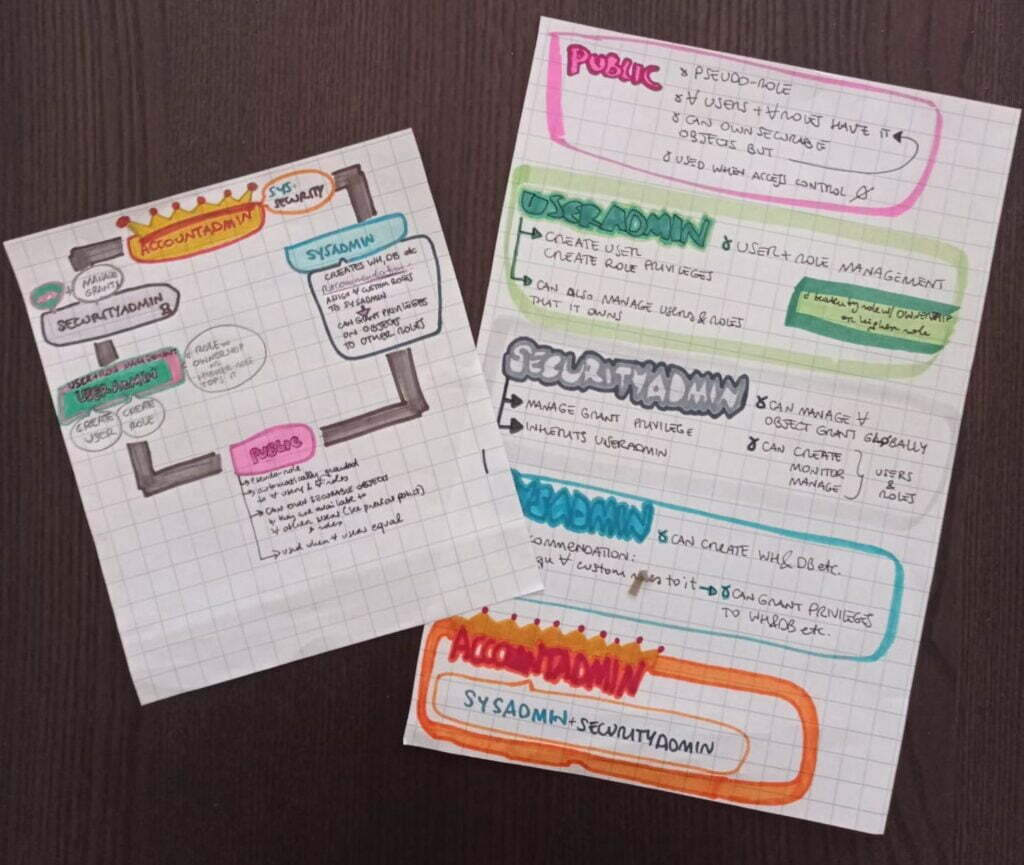 ACCOUNTADMIN
SYS+
SECURITY
MANAGE
GRANTS
SECURITYADMIN
SYSADMIN
CREATES WH, DB etc
Recommendation:
ASSIGN ∀ CUSTOM ROLES
TO SYSADMIN
CAN GRANT PRIVILEGES
ON OBJECTS
TO OTHER ROLES
USER + ROLE MANAGEMENT
USERADMIN
ROLE w/
OWNERSHIP
HIGHER ROLE
TOPS IT
CREATE
USER
CREATE
ROLE
PUBLIC
pseudo-role
automatically granted
to ∀ users & ∀ roles
CAN OWN SECURABLE OBJECTS
they are available to
∀ other users
& roles
used when ∀ users equal
PUBLIC
PSEUDO-ROLE
∀ USERS + ∀ ROLES HAVE IT
CAN OWN SECURABLE
OBJECTS BUT
USED WHEN ACCESS CONTROL Ø
USERADMIN
USER + ROLE MANAGEMENT
CREATE USER
CREATE ROLE PRIVILEGES
CAN ALSO MANAGE USERS & ROLES
THAT IT OWNS
beaten by role w/ OWNERSHIP
on higher role
SECURITYADMIN
MANAGE GRANT PRIVILEGE
INHERITS USERADMIN
CAN MANAGE ∀
OBJECT GRANT GLOBALLY
CAN CREATE
MONITOR
MANAGE
USERS
&
ROLES
SYSADMIN
CAN CREATE WH & DB etc.
COMMENDATION:
∀ custom roles to it → CAN GRANT PRIVILEGES
TO WH & DB etc.
ACCOUNTADMIN
SYSADMIN + SECURITYADMIN